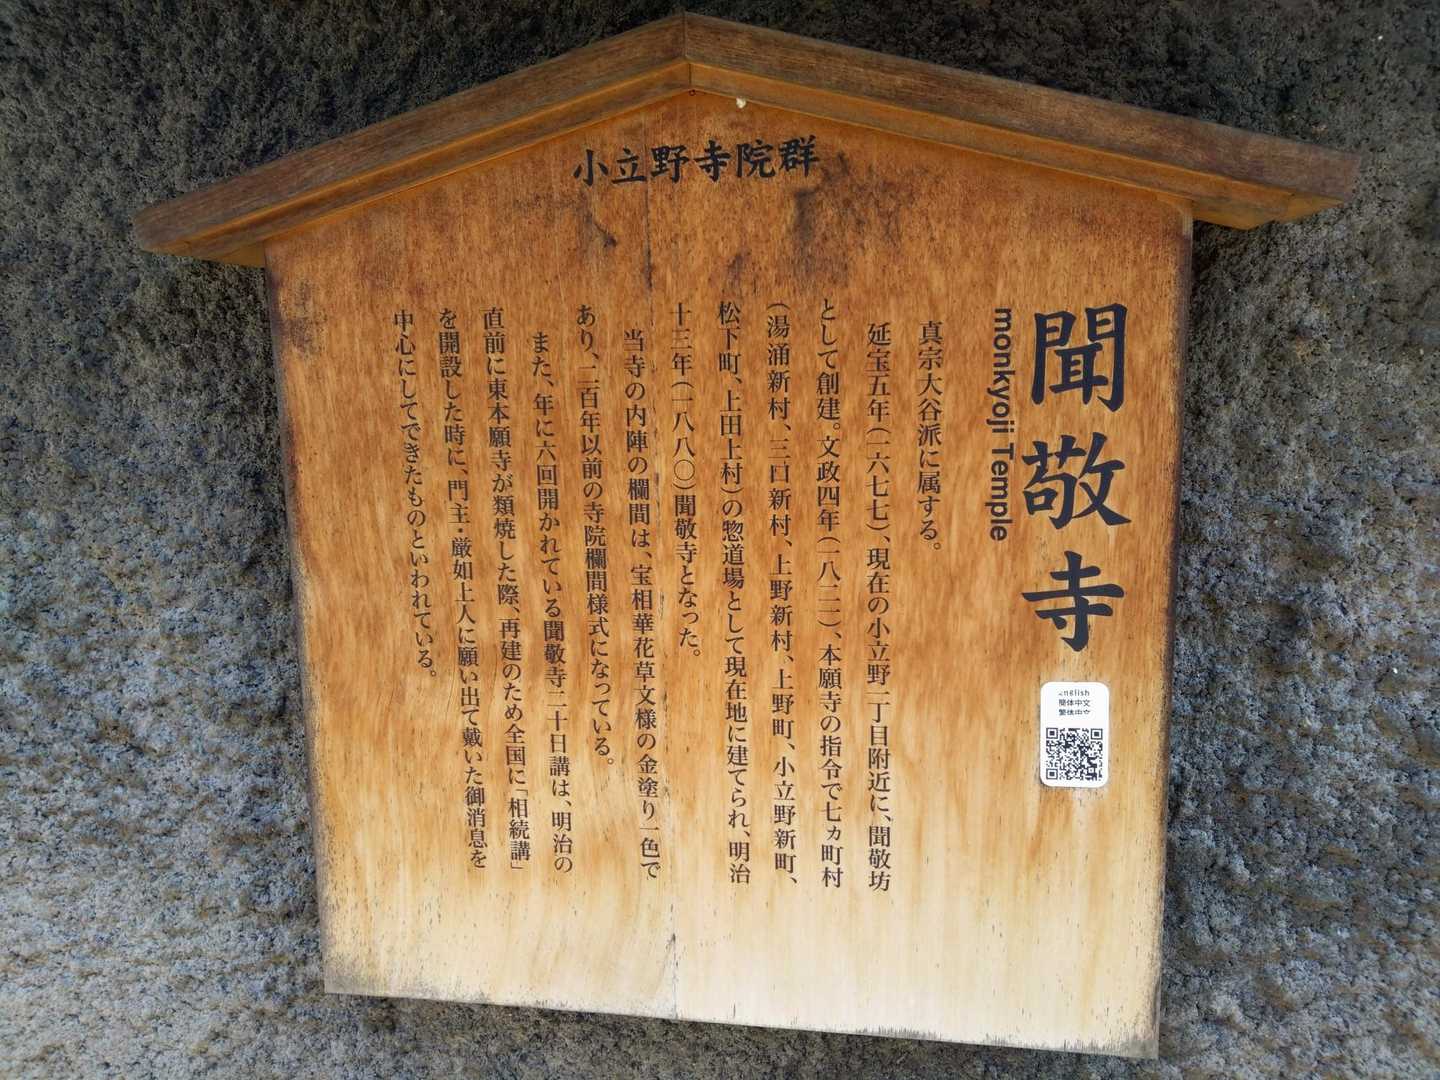 小立野寺院群
聞敬寺
monkyoji Temple
真宗大谷派に属する。
延宝五年(一六七七)、現在の小立野一丁目附近に、聞敬坊
として創建。文政四年(一八二一)、本願寺の指令で七ヵ町村
(湯涌新村、三口新村、上野新村、上野町、小立野新町、
松下町、上田上村)の惣道場として現在地に建てられ、明治
十三年(一八八〇)聞敬寺となった。
当寺の内陣の欄間は、宝相華花草文様の金塗り一色で
あり、二百年以前の寺院欄間様式になっている。
また、年に六回開かれている聞敬寺二十日講は、明治の
直前に東本願寺が類焼した際、再建のため全国に「相続講」
を開設した時に、門主・厳如上人に願い出て戴いた御消息を
中心にしてできたものといわれている。
English
簡体中文
繁体中文